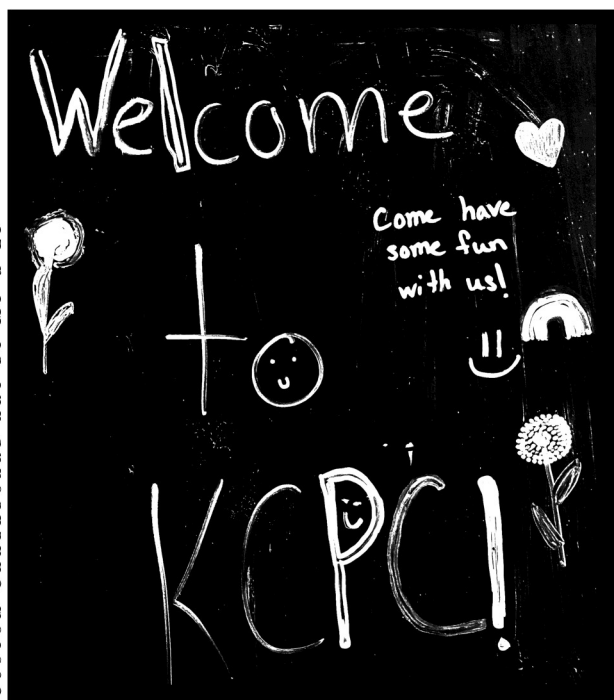 Welcome
Come have
some fun
with us!
to
KCPC!